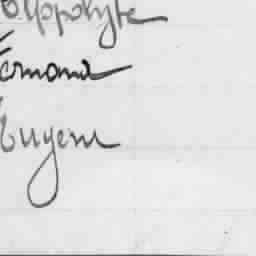 Hyppolyte
Fernand
Eugène